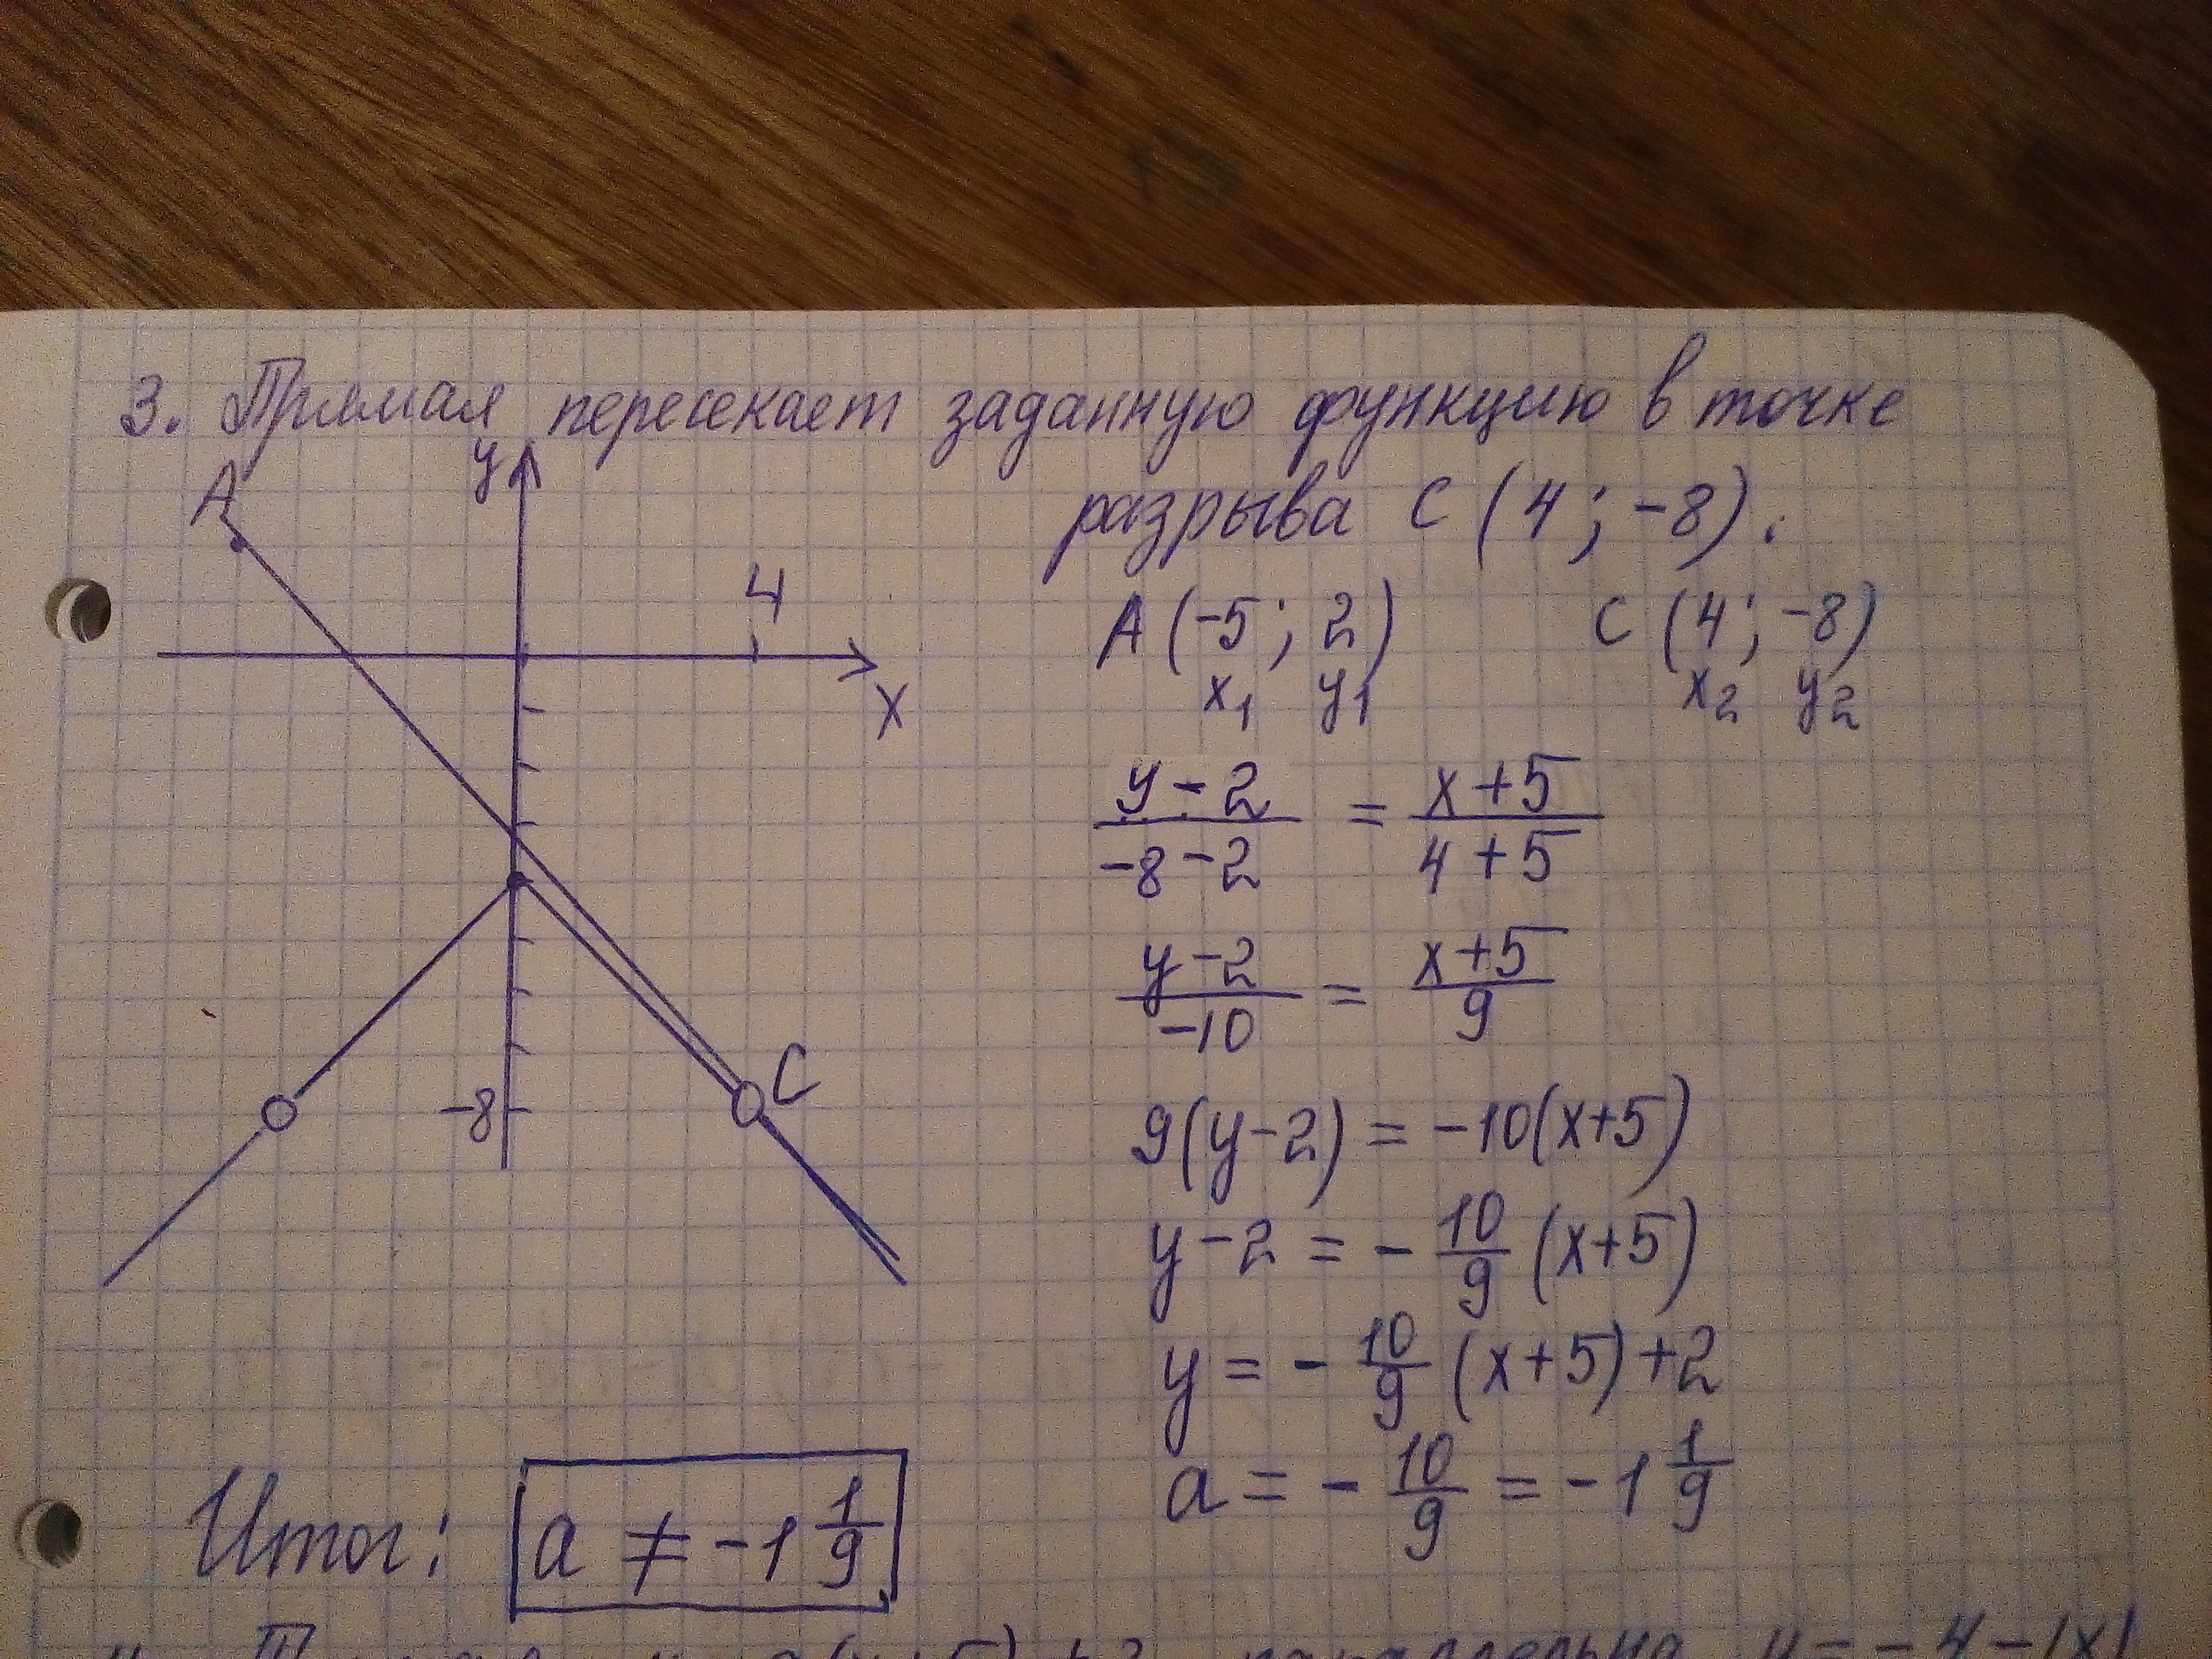 3. Прямая пересекает заданную функцию в точке
разрыва C (4; -8).
A
y
4
x
-8
C
A (-5; 2) C (4; -8)
x₁ y₁ x₂ y₂
(y-2)/(-8-2) = (x+5)/(4+5)
(y-2)/(-10) = (x+5)/9
9(y-2) = -10(x+5)
y-2 = -10/9 (x+5)
y = -10/9 (x+5)+2
a = -10/9 = -1 1/9
Итог: a ≠ -1 1/9
параллельна y = -4-|x|